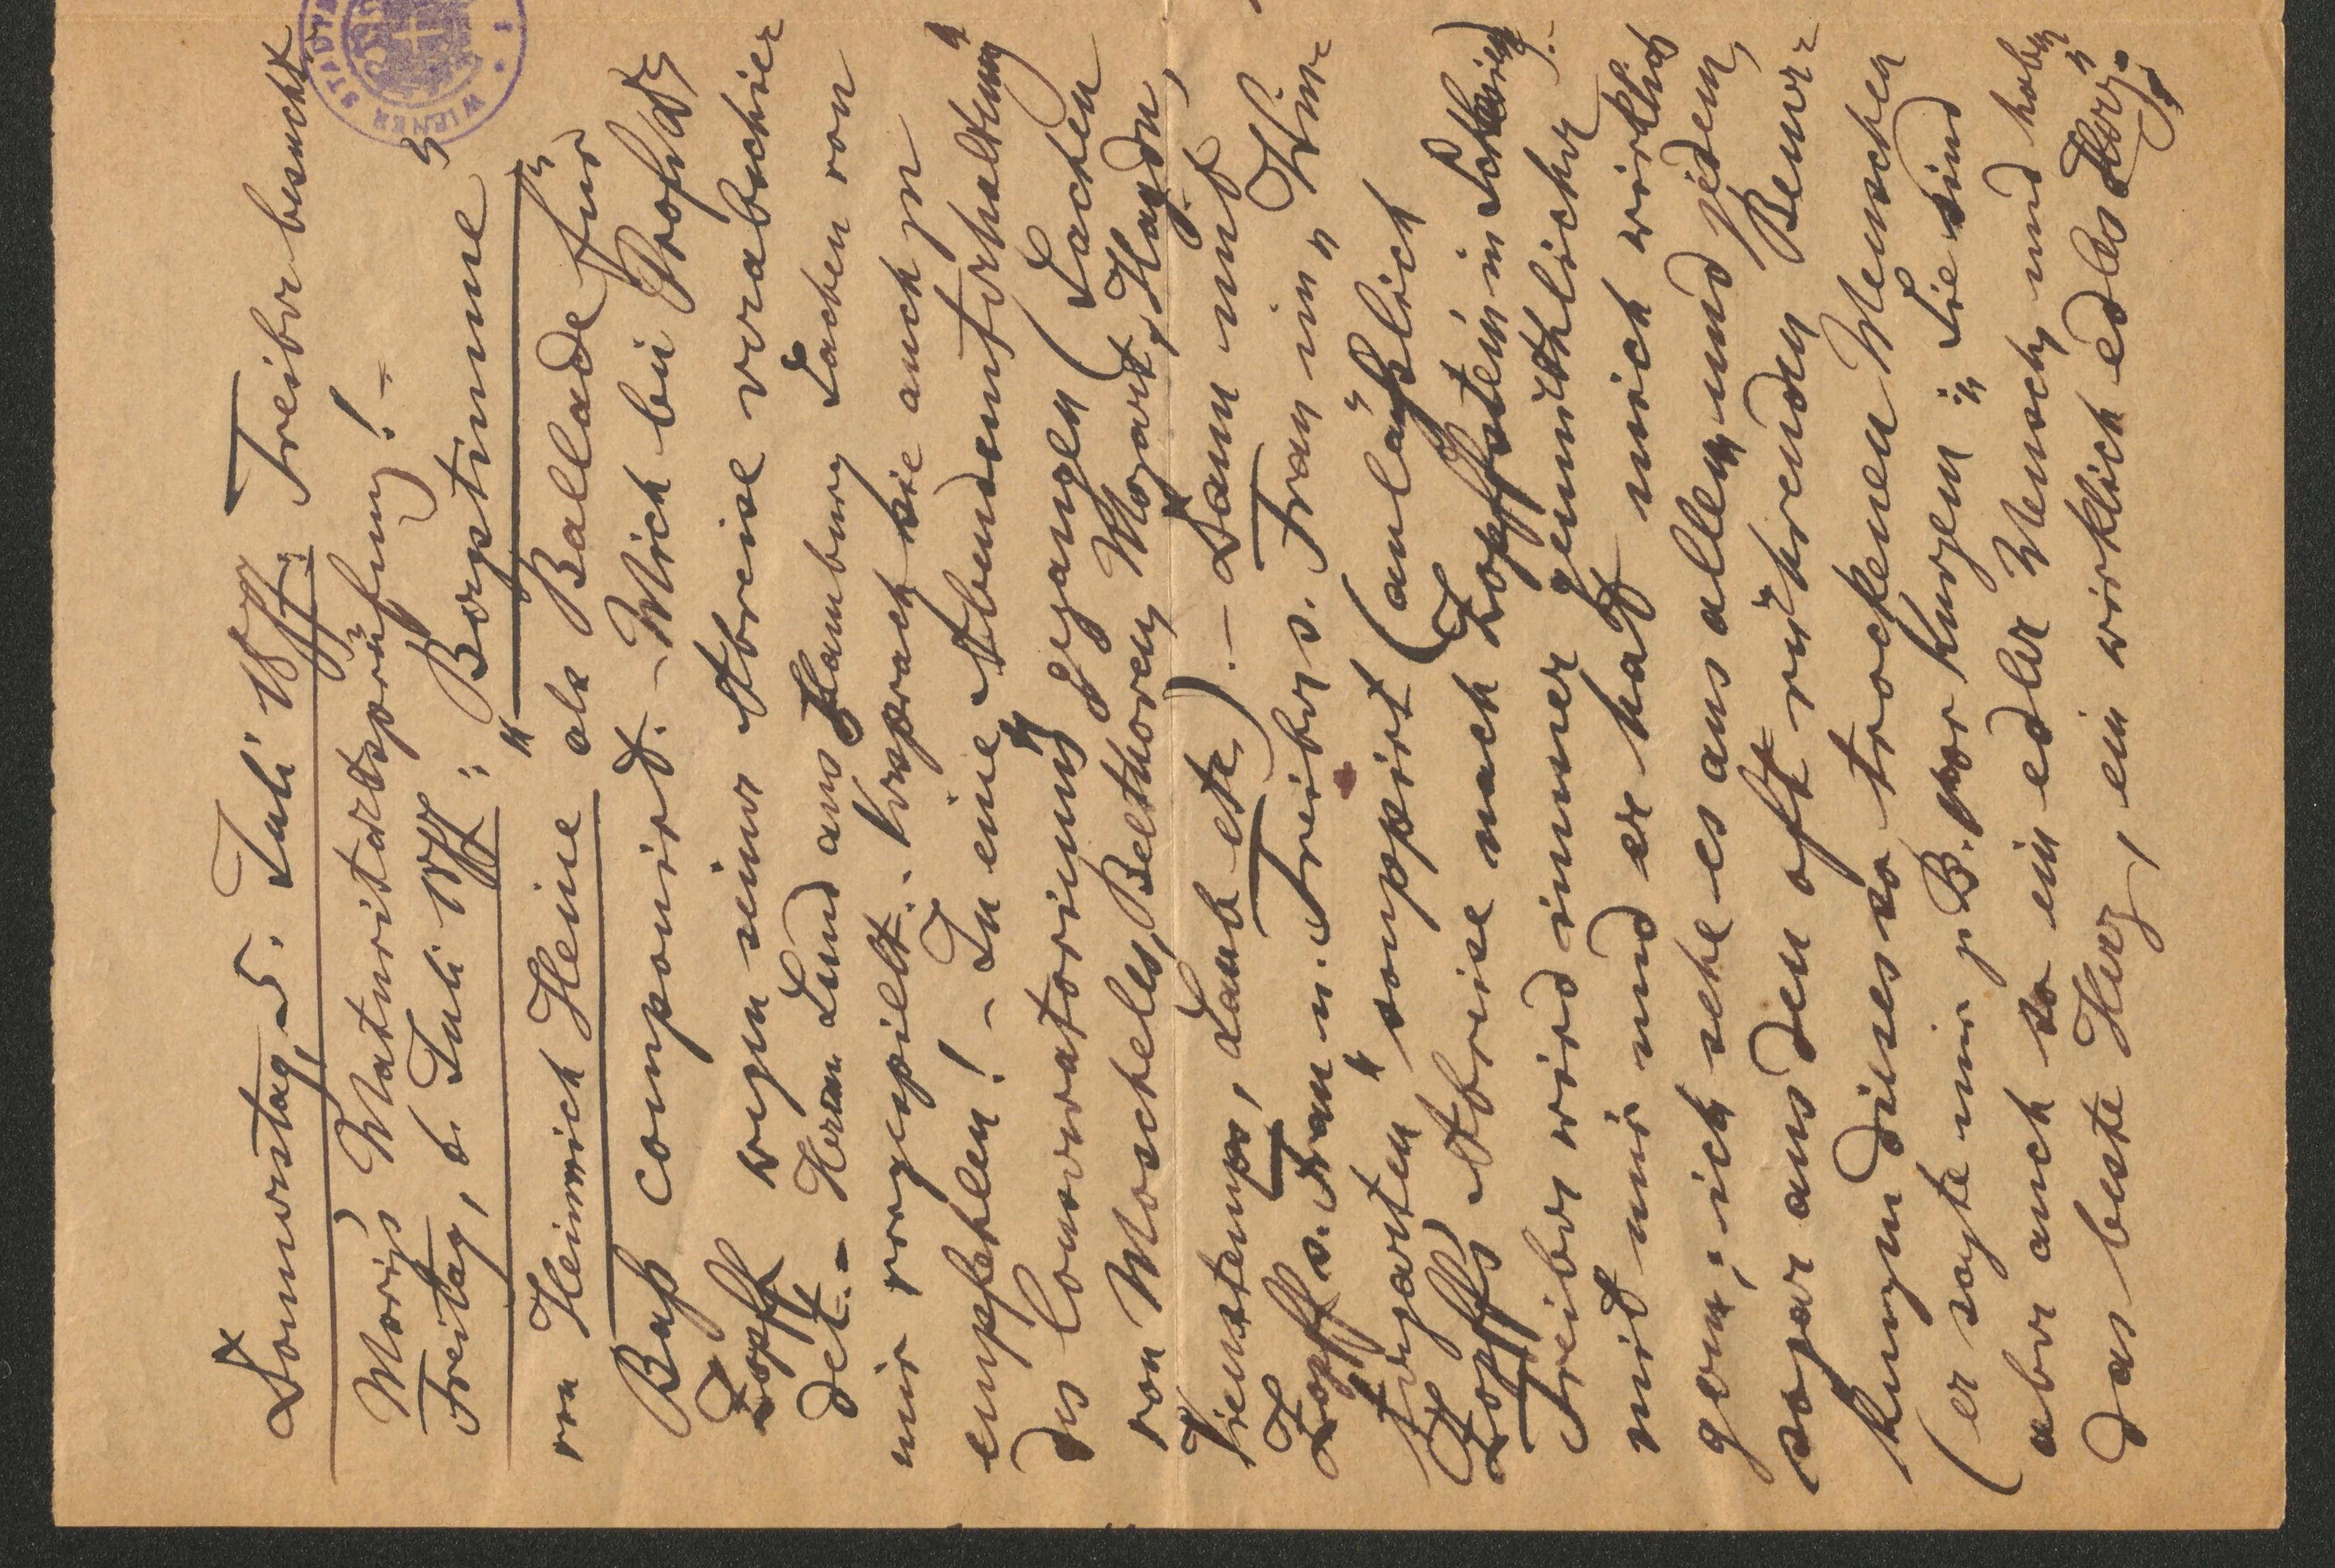 Donnerstag, 5. Juli 1877. Treiber besucht.
Moriz' Maturitätsprüfung! –
Freitag, 6. Juli 1877: "Bergstimme"
von Heinrich Heine als Ballade für
Baß componirt. – Mich bei Prof. Dr.
Zopff wegen seiner Abreise verabschie-
det. – Herrn Lund aus Hamburg Sachen von
mir vorgespielt. Versprach sie auch zu
empfehlen! – In eine "Abendunterhaltung
des Conservatoriums" gegangen (Sachen
von Moscheles, Beethoven, Mozart, Haydn,
Vieuxtemps, Laub etc). – Dann mit
Zopff s. Frau u. Treiber s. Frau im "Thür-
tergarten" soupirt (anläßlich
Zopffs Abreise nach Zopffstein in Schlesien).
Treiber wird immer gemüthlicher
mit mir und er hat mich wirklich
gern; ich sehe es aus allem und jedem,
sogar aus den oft rührenden Bemer-
kungen dieses so trockenen Menschen
(er sagte mir z. B. vor kurzem: "Sie sind
aber auch so ein edler Mensch, und haben
das beste Herz, ein wirklich edles Herz."
WIENER STADT